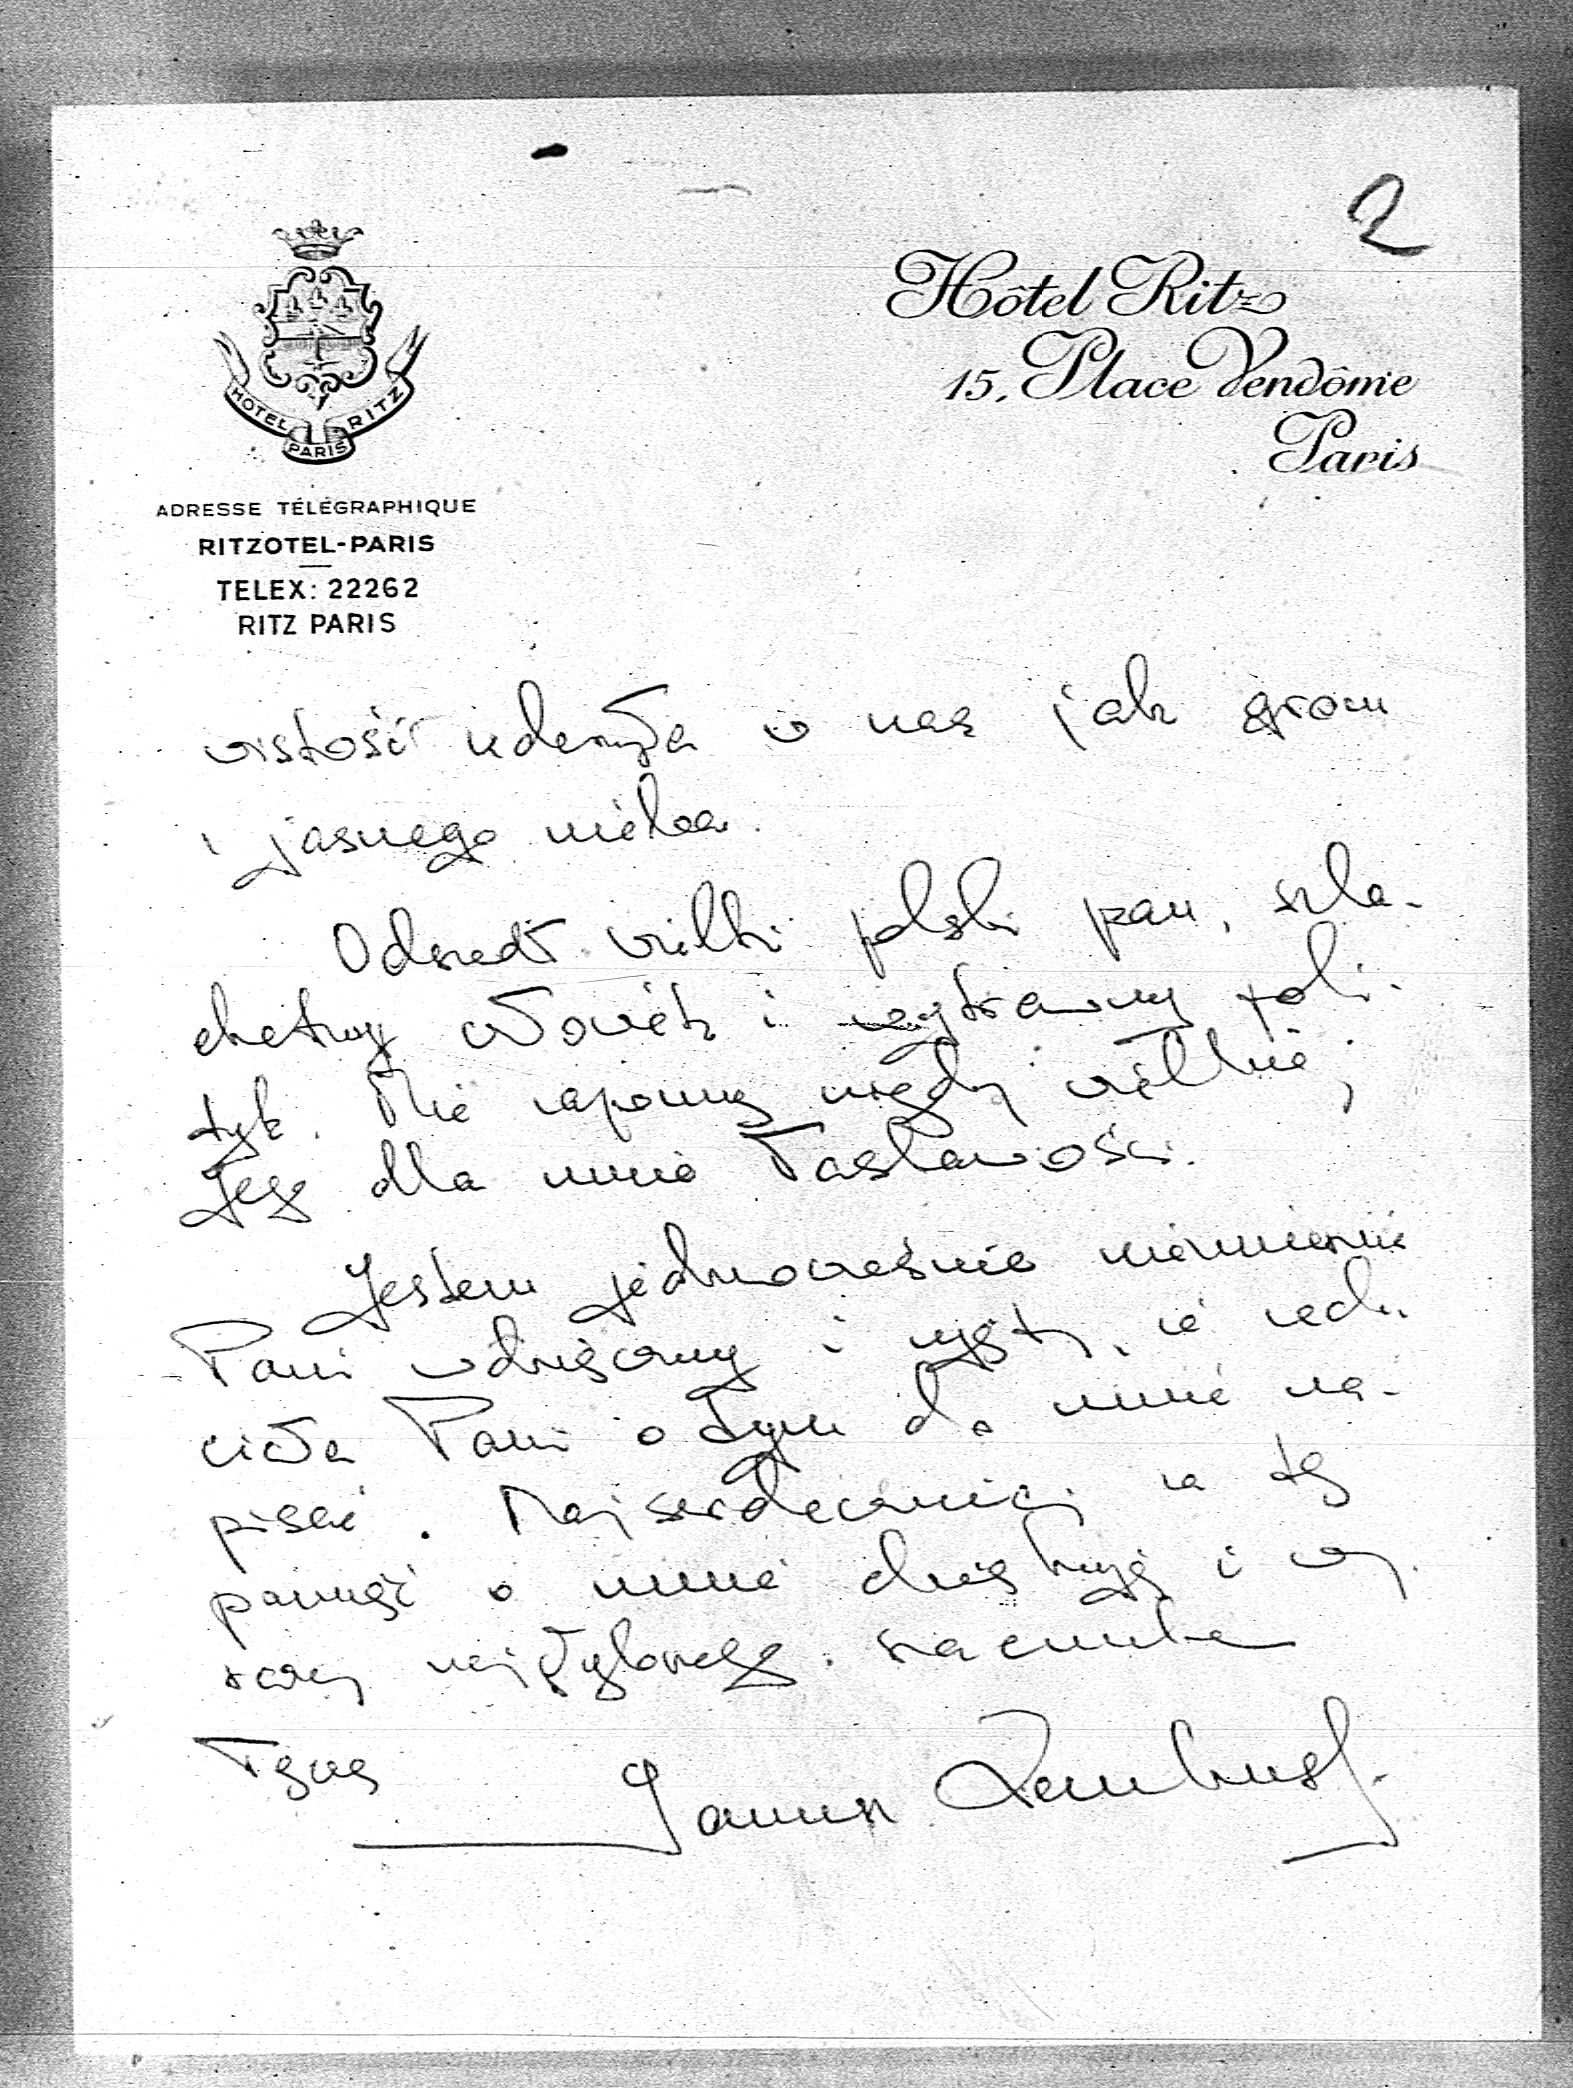 2
Hôtel Ritz
15, Place Vendôme
Paris
HOTEL RITZ
PARIS
ADRESSE TÉLÉGRAPHIQUE
RITZOTEL-PARIS
TELEX: 22262
RITZ PARIS
wistość uderzyła w nas jak grom
z jasnego nieba.
Odszedł wielki polski pan, szla-
chetny człowiek i wytrawny poli-
tyk. Nie zapomnę nigdy wielkiej
Jego dla mnie łaskawości.
Jestem jednocześnie niezmiernie
Pani wdzięczny i zajęty, że zech-
ciała Pani o tym do mnie na-
pisać. Najserdeczniej za tę
pamięć o mnie dziękuję i wy-
razy najgłębszego szacunku
łączę
Janusz